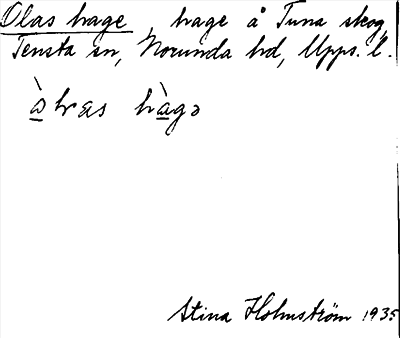 Olas hage, hage å Tuna skog,
Tensta sn, Norunda hd, Upps. l.
hàgə
Stina Holmström 1935